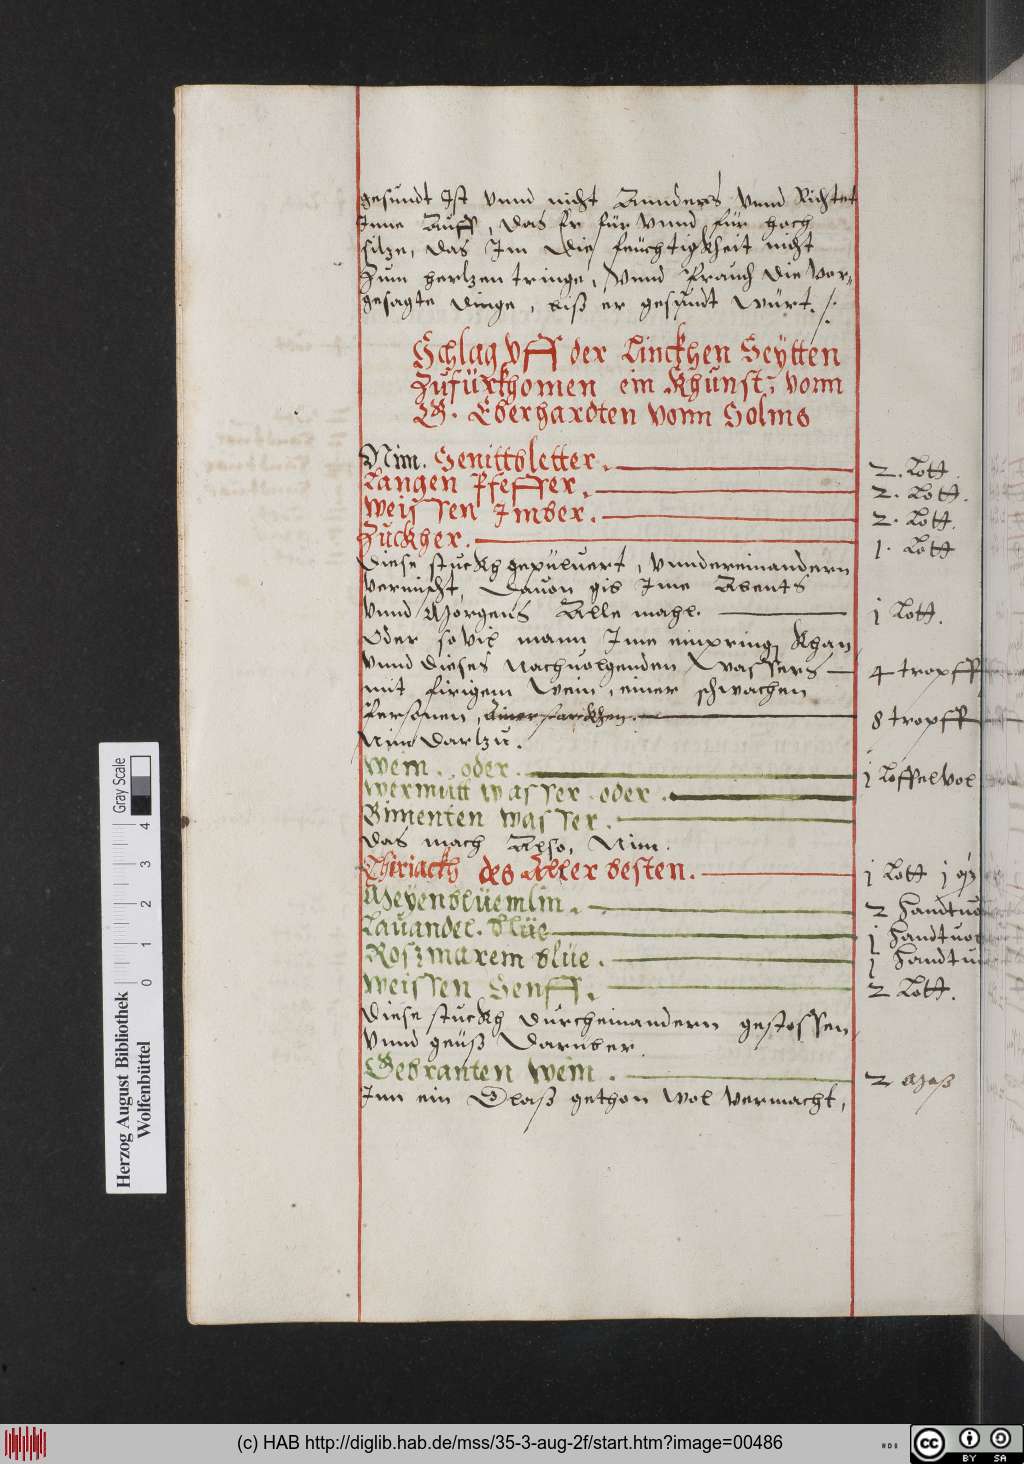 gesundt Ist vnnd nicht Annders vnnd Richtet
Inne Auff, das Er für vnnd für hoch
sitze, das Im die feüchtigkheit nicht
Zum hertzen tringe, vnnd Brauch die vor-
gesagte dinge, biß er gesundt würt ./.
Schlag vff der Linckhen Seytten
Zufürkhomen ein Khunst, vonn
G. Eberhardten vonn Solms
Nim. Senittbletter. 2. Lott
Langen Pfeffer. 2. Lott.
Weissen Imber. 2. Lott.
Zuckher. 1. Lott
Diese stuckh gepüluert, vnndereinandern
vermischt, Dauon gib Ime Abents
vnnd Morgens Alle mahl. j Lott.
Oder souil mann Ime einpring Khan
vnnd dieses Nachuolgenden Wassers 4 tropff
mit firigem Wein, einer schwachen
Personen, Einer starckhen. 8 tropff
Nim Dartzu.
Wein. oder. j Löffelvol
Wermutt wasser oder.
Binnenten wasser.
Das mach Also, Nim.
Thiriackh des Aller besten. j Lott j
Meyenblüemlin. 2 Handtuol
Lauandel. blüe j Handtuol
Roszmarein blüe. j Handtu
Weissen Senff. 2 Lott.
Diese stuckh durcheinandern gestossen
vnnd geüß Darüber.
Gebranten Wein. 2 Maß
Inn ein Glaß gethon wol vermacht,
Herzog August Bibliothek
Wolfenbüttel
0 1 2 3 4
Gray Scale
(c) HAB http://diglib.hab.de/mss/35-3-aug-2f/start.htm?image=00486
cc BY SA